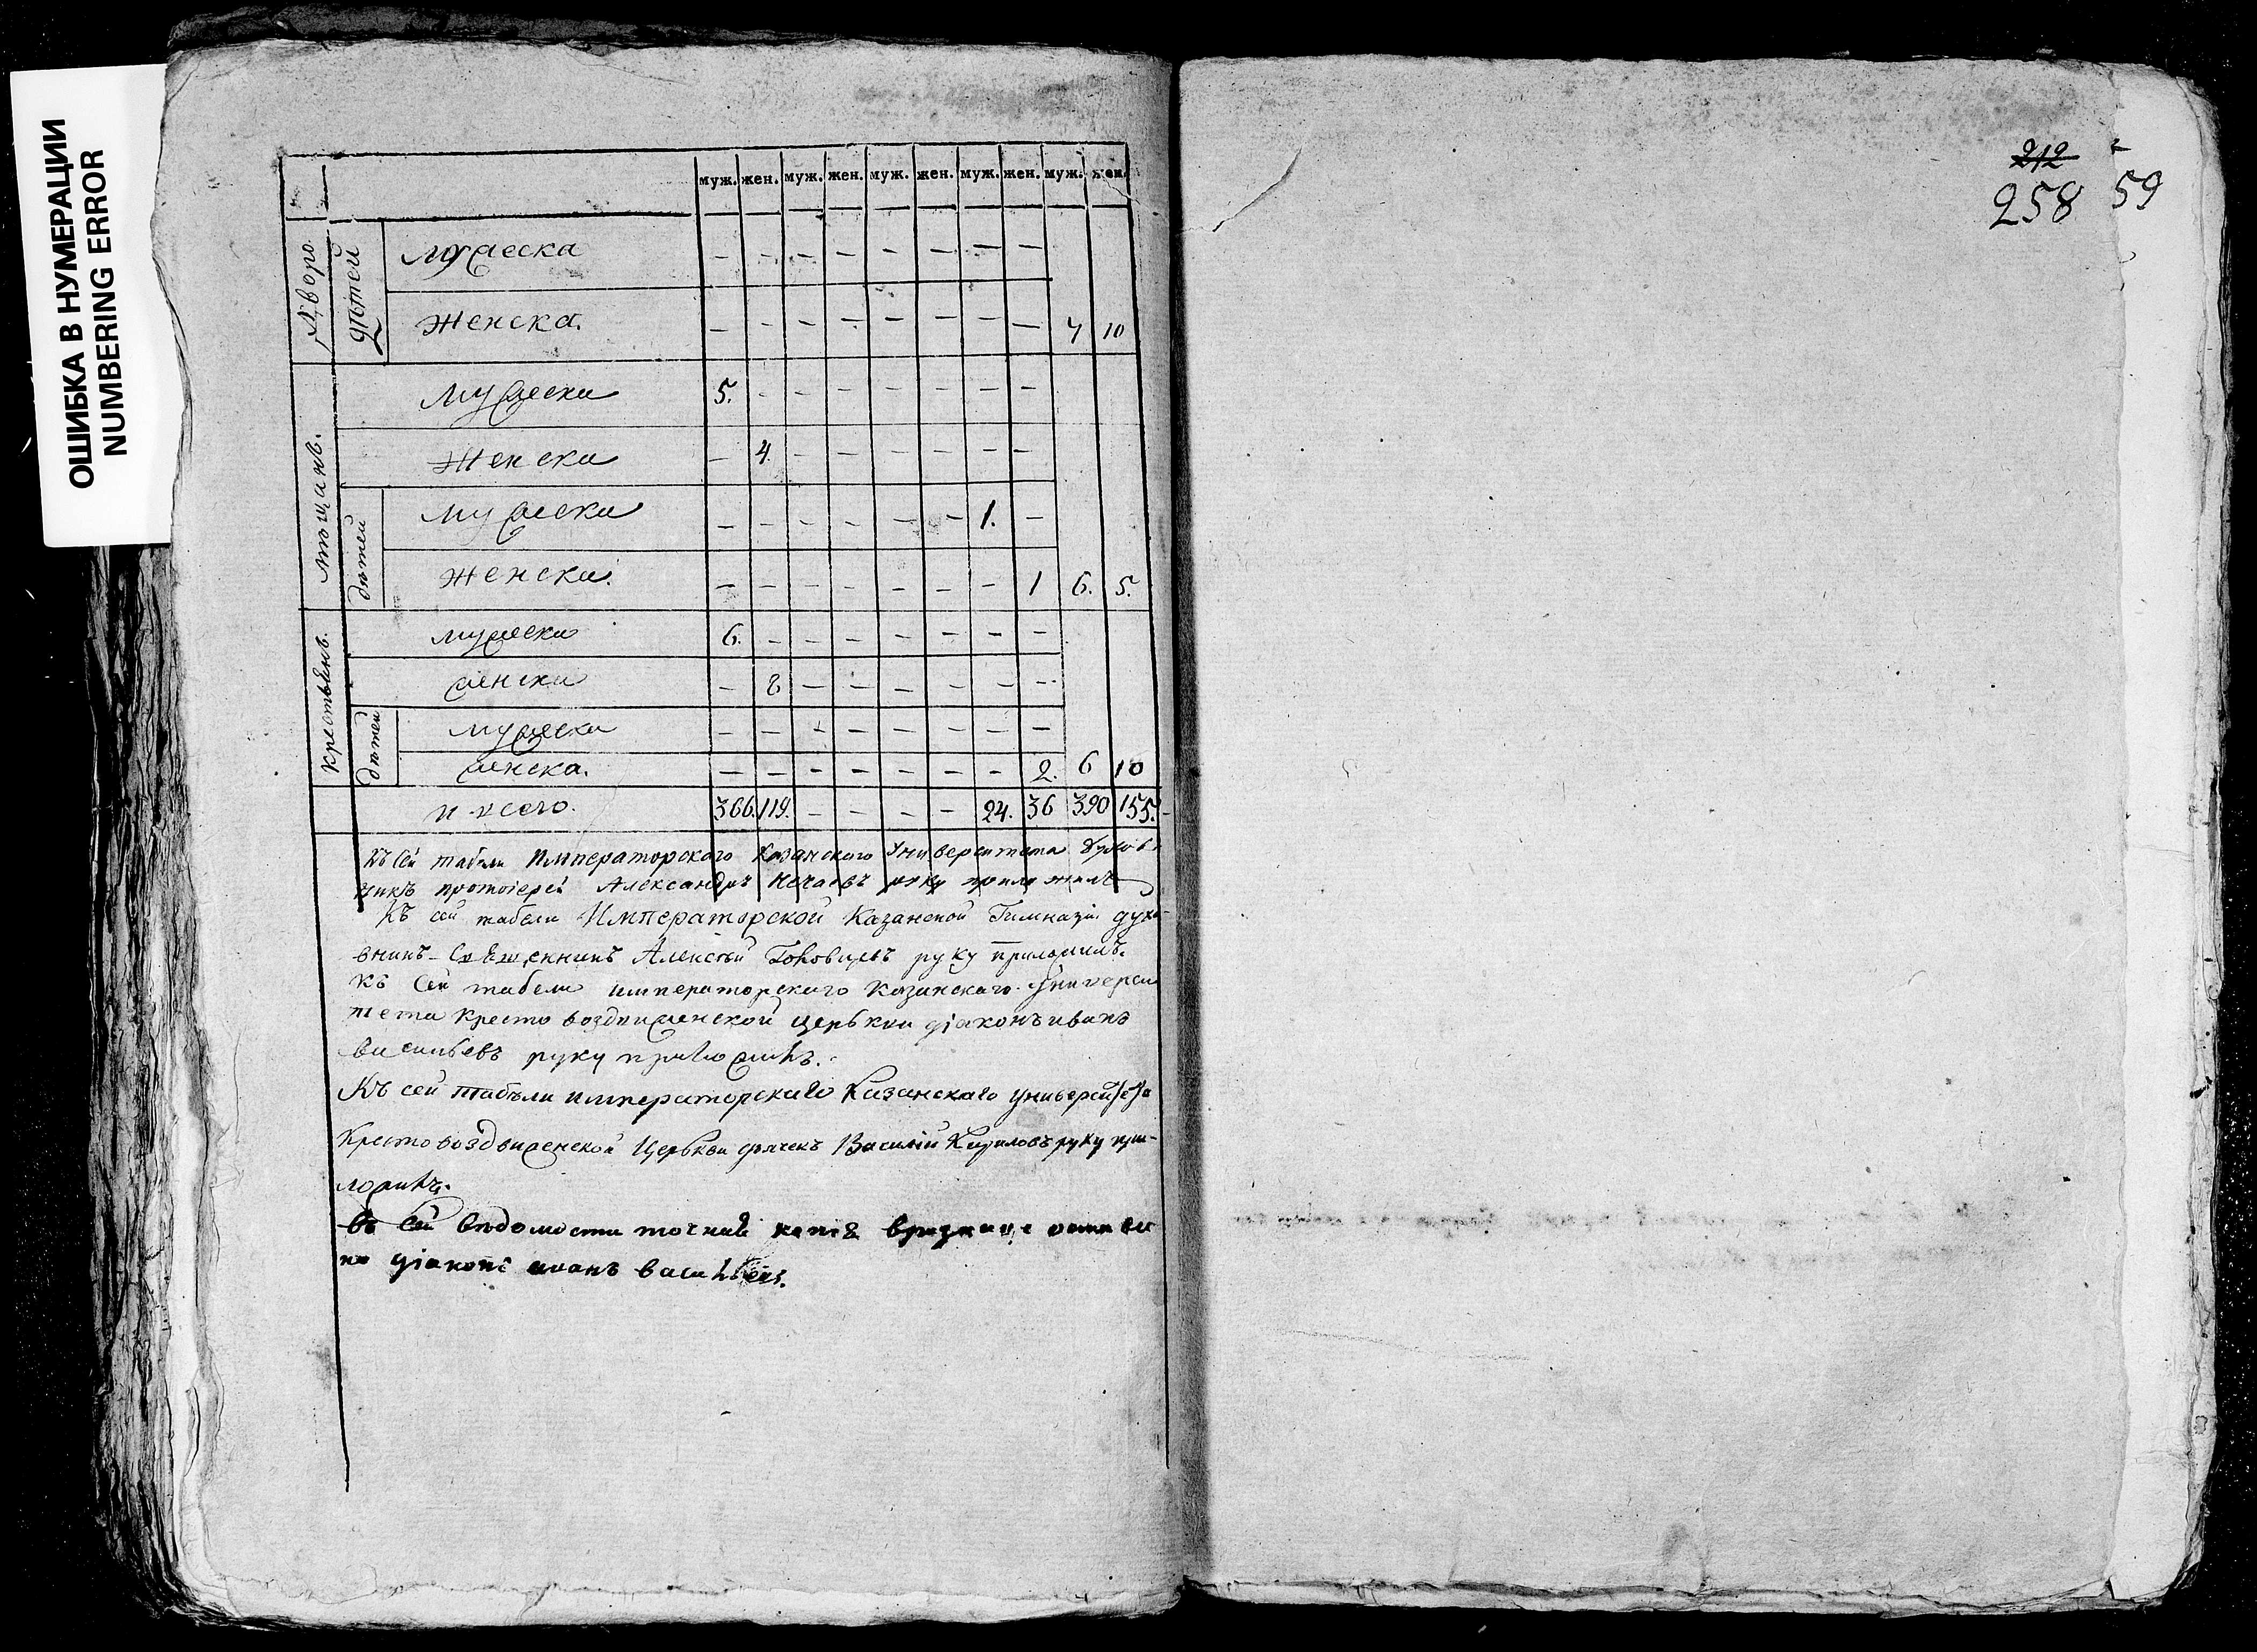 ОШИБКА В НУМЕРАЦИИ
NUMBERING ERROR
муж. жен. муж. жен. муж. жен. муж. жен. муж. жен.
Дворо
дѣтей
мужеска — — — — — — — —
Женска. — — — — — — — — 7 10
мѣщанъ.
мужеска 5. — — — — — — —
Женска — 4. — — — — — —
дѣтей
мужеска — — — — — — 1. —
женска. — — — — — — — 1 6. 5.
крестьянъ.
мужеска 6. — — — — — — —
женска — 8 — — — — — —
дѣтей
мужеска — — — — — — — —
женска. — — — — — — — 2. 6 10
и всего. 366. 119. — — — — 24. 36 390 155.
Къ сей табели Императорского Казанского Университета Духов
никъ протоіерей Александръ Нечаевъ руку приложилъ
Къ сей табели Императорской Казанской Гимназіи духо
вникъ Священникъ Алексѣй руку приложилъ.
Къ сей табели императорскаго Казанскаго Универси
тета Кресто воздвиженской церькви діаконъ иванъ
васильевъ руку приложилъ.
Къ сей табѣли императорскаго Казанскаго Университета
Крестовоздвиженской Церькви дьячекъ Василій Кириловъ руку при-
ложилъ.
въ сей вѣдомости точная копія вризнице оставле
на діаконъ иванъ васильевъ.
212
258 59